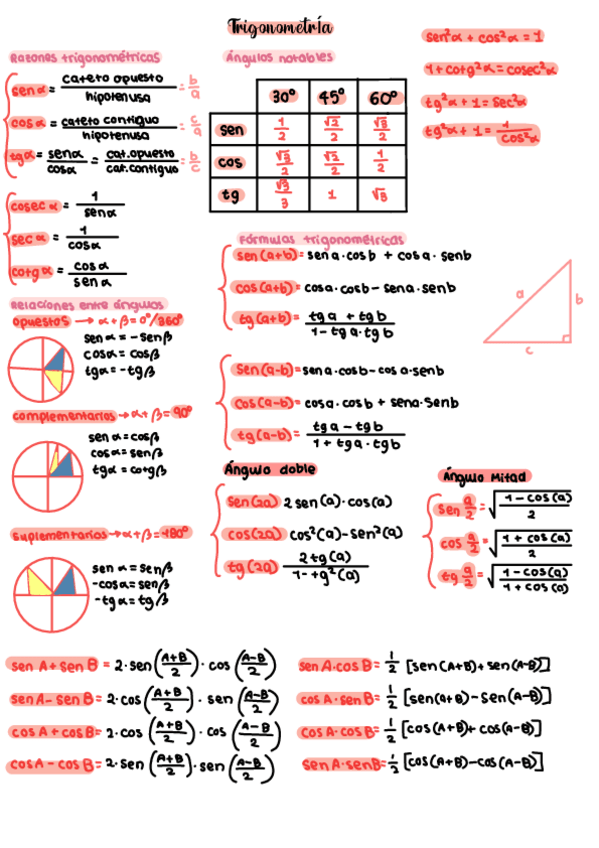 Trigonometría
Razones trigonométricas
sen α = cateto opuesto / hipotenusa = b/a
cos α = cateto contiguo / hipotenusa = c/a
tg α = sen α / cos α = cat. opuesto / cat. contiguo = b/c
cosec α = 1 / sen α
sec α = 1 / cos α
cotg α = cos α / sen α
Ángulos notables
30º 45º 60º
sen 1/2 √2/2 √3/2
cos √3/2 √2/2 1/2
tg √3/3 1 √3
sen²α + cos²α = 1
1 + cotg²α = cosec²α
tg²α + 1 = sec²α
tg²α + 1 = 1 / cos²α
Relaciones entre ángulos
opuestos → α + β = 0º/360º
sen α = - sen β
cos α = cos β
tg α = - tg β
complementarios → α + β = 90º
sen α = cos β
cos α = sen β
tg α = cotg β
suplementarios → α + β = 180º
sen α = sen β
-cos α = sen β
-tg α = tg β
Fórmulas trigonométricas
sen(a+b) = sen a · cos b + cos a · sen b
cos(a+b) = cos a · cos b - sen a · sen b
tg(a+b) = tg a + tg b / 1 - tg a · tg b
sen(a-b) = sen a · cos b - cos a · sen b
cos(a-b) = cos a · cos b + sen a · sen b
tg(a-b) = tg a - tg b / 1 + tg a · tg b
a
b
c
Ángulo doble
sen(2a) 2 sen(a) · cos(a)
cos(2a) cos²(a) - sen²(a)
tg(2a) 2 tg(a) / 1 - tg²(a)
Ángulo Mitad
sen a/2 = √(1 - cos(a) / 2)
cos a/2 = √(1 + cos(a) / 2)
tg a/2 = √(1 - cos(a) / 1 + cos(a))
sen A + sen B = 2 · sen (A+B / 2) · cos (A-B / 2)
sen A - sen B = 2 · cos (A+B / 2) · sen (A-B / 2)
cos A + cos B = 2 · cos (A+B / 2) · cos (A-B / 2)
cos A - cos B = 2 · sen (A+B / 2) · sen (A-B / 2)
sen A · cos B = 1/2 [sen(A+B) + sen(A-B)]
cos A · sen B = 1/2 [sen(a+B) - sen(A-B)]
cos A · cos B = 1/2 [cos(A+B) + cos(a-B)]
sen A · sen B = 1/2 [cos(A+B) - cos(A-B)]